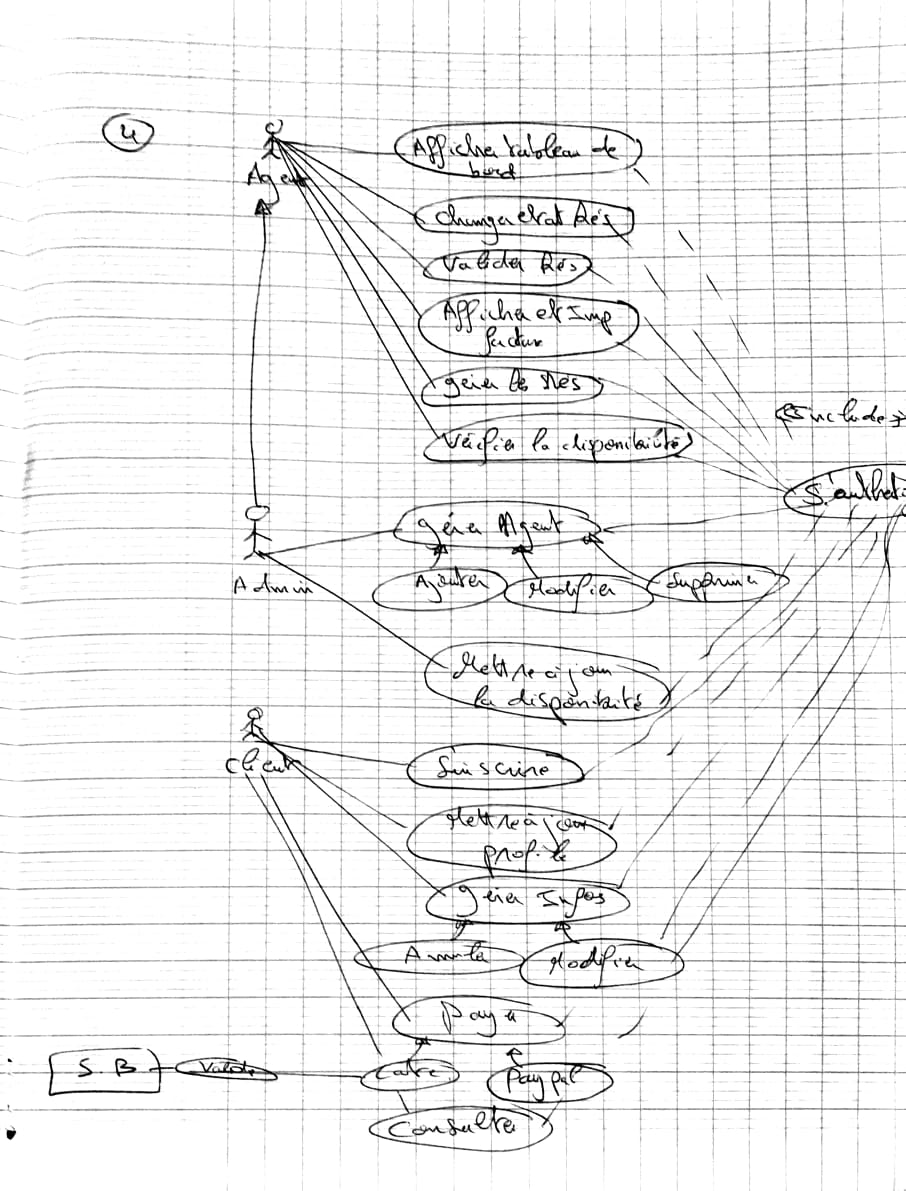 4
Agent
Afficher tableau de
bord
changer etat Rés
Valider Rés
Afficher et Imp
facture
gérer les Rés
Vérifier la disponibilité
<<include>>
S'authenti
Admin
gérer Agent
Ajouter
Modifier
Supprimer
Mettre à jour
la disponibilité
Client
S'inscrire
Mettre à jour
profile
gérer Infos
Annuler
Modifier
Payer
S.B
Valider
Carte
Paypal
Consulter